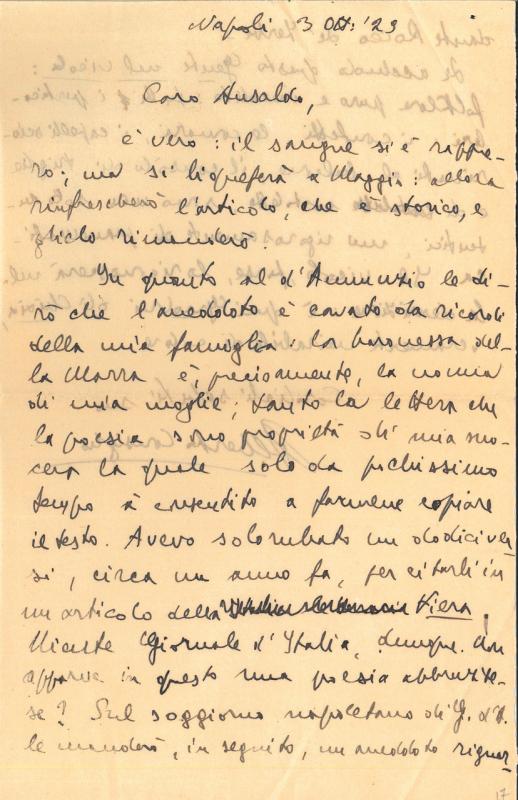 Napoli 3 Ott. '23
Caro Ansaldo,
è vero: il sangue si è rappre-
so; ma si liquefarà a Maggio: allora
rinfrescherò l'articolo, che è storico, e
glielo rimanderò.
In quanto al d'Annunzio le di-
rò che l'aneddoto è cavado da ricordi
della mia famiglia: la baronessa del-
la Marra è, precisamente, la nonna
di mia moglie; tanto la lettera che
la poesia sono proprietà di mia suo-
cera la quale solo da pochissimo
tempo à consentito a farmene copiare
il testo. Avevo solo rubato un dodici ver-
si, circa un anno fa, per citarli in
un articolo della Fiera.
Niente Giornale d'Italia, dunque. Non
apparve in questo una poesia abbruzze-
se? Sul soggiorno napoletano di G. d'A.
le manderò, in seguito, un aneddoto riguar-
17